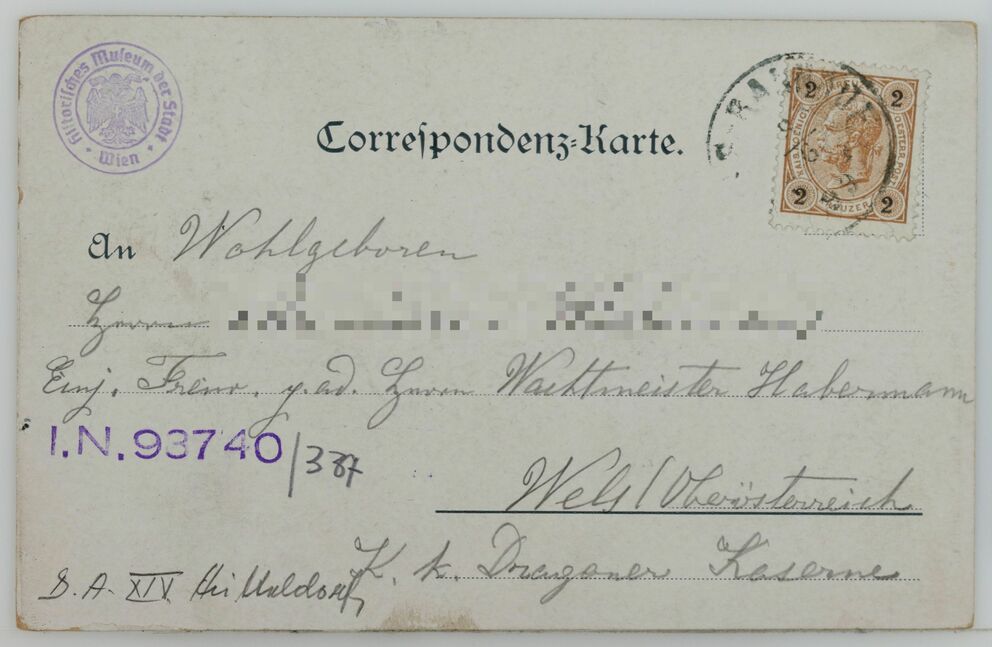 Historisches Museum der Stadt Wien
Correspondenz-Karte.
2 2
KREUZER
2 2
An Wohlgeboren
Herrn
Einj. Freiw. p. ad. Herrn Wachtmeister Habermann
I.N. 93740/387
Wels/Oberösterreich
K. k. Dragoner Kaserne
XIV